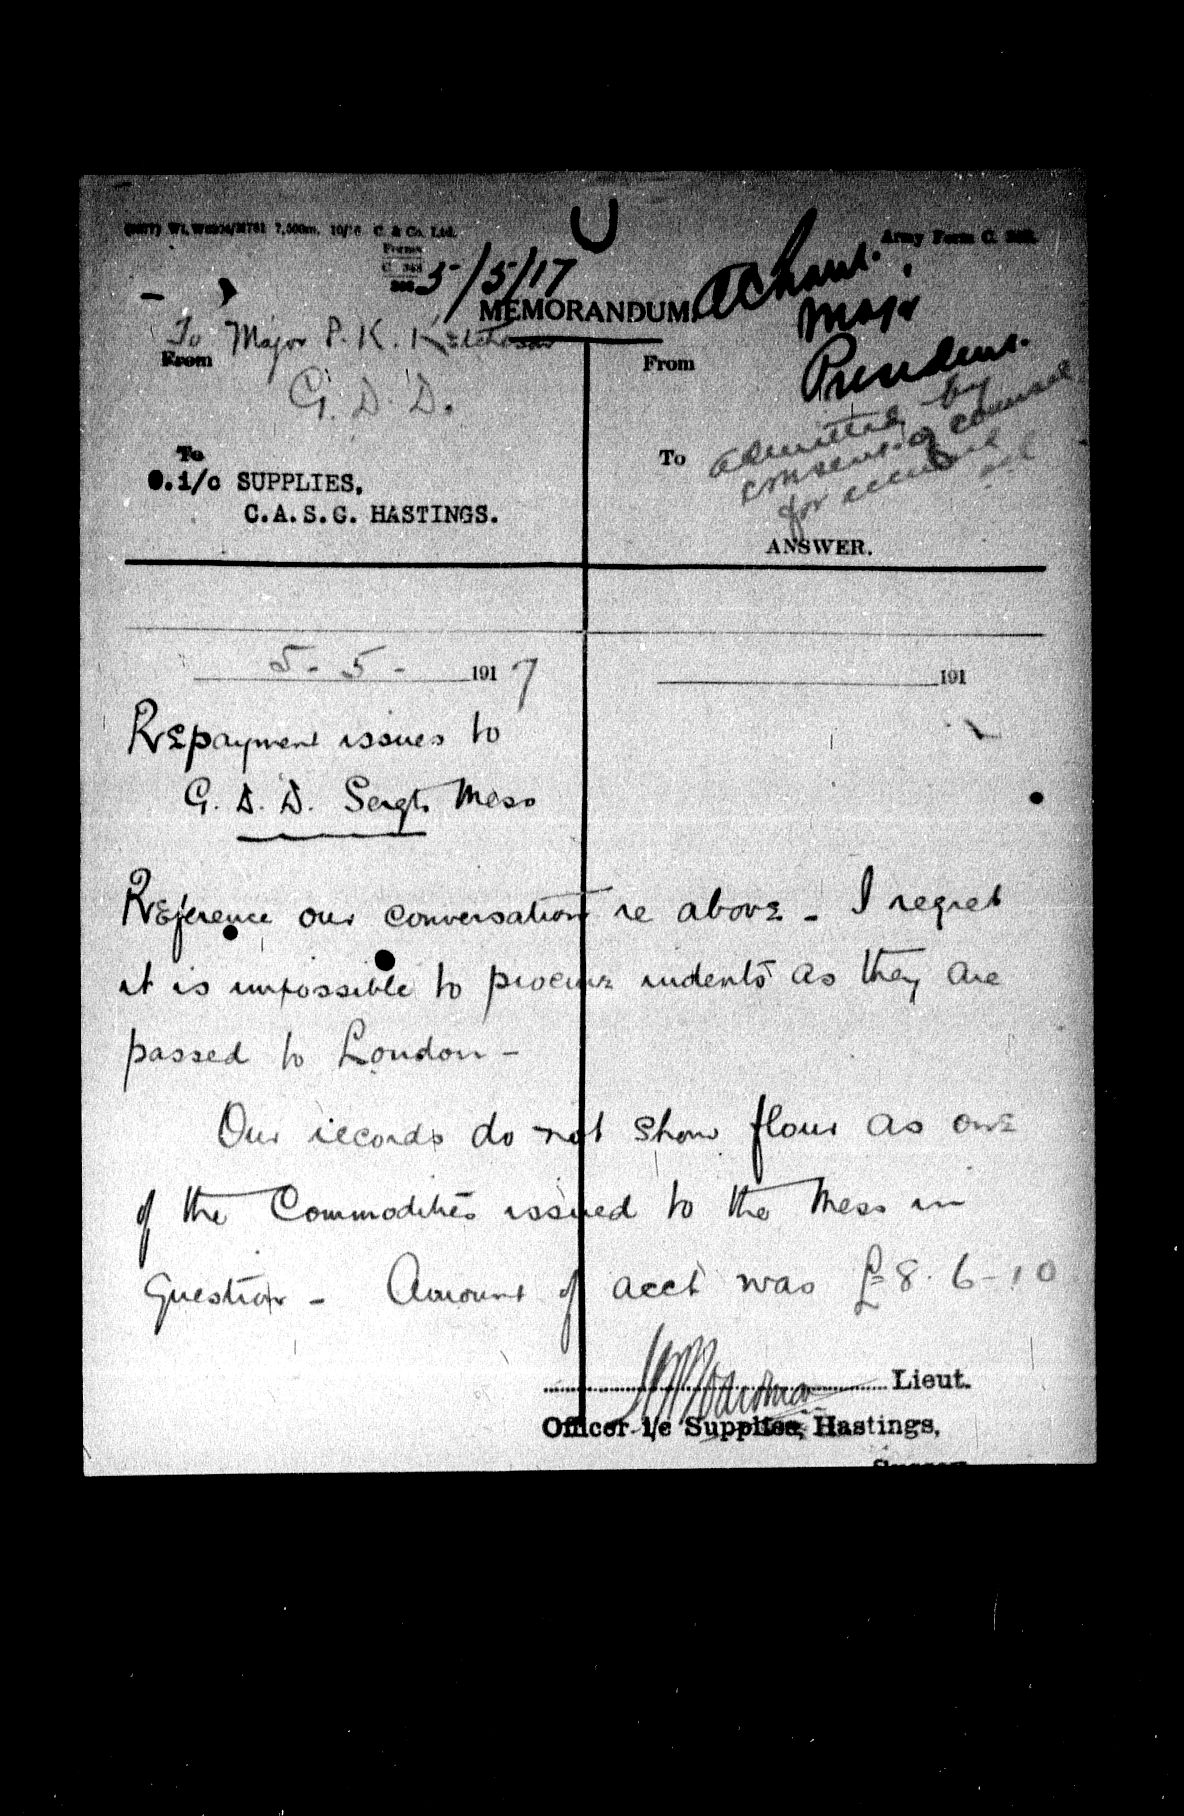 7,500m. 10/16 C. & Co. Ltd.
Army Form C. 348.
Forms
C. 348
5/5/17
U
MEMORANDUM.
Major
President.
To Major P. K. Ketcheson
From
G. D. D.
From
admitted by
consent of counsel
for accused
To
O.i/c SUPPLIES,
C.A.S.C. HASTINGS.
To
ANSWER.
5 - 5 - 1917
191
Repayment issues to
G. D. D. Sergts Mess
Reference our conversation re above - I regret
it is impossible to procure indents as they are
passed to London -
Our records do not show flour as one
of the Commodities issued to the Mess in
Question - Amount of acct was £8. 6-10
Lieut.
Officer i/c Supplies, Hastings,
Sussex